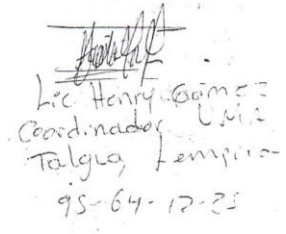 Lic Henry Gómez
Coordinador UMA
Talgua, Lempira
95-64-12-